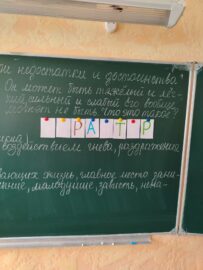 ти недостатки и достоинства?
Он может быть тяжёлый и лёг-
кий, сильный и слабый. Его вообще
может не быть. Что это такое?
РА ТР
воздействием гнева, раздражения
вающих жизнь, главное место зани-
мание, малодушие, зависть, нена-